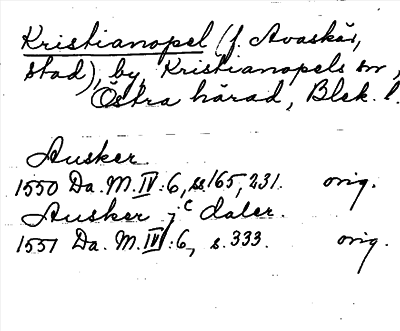 Kristianopel (f. Avaskär,
stad), by, Kristianopels sn,
Östra härad, Blek. l.
Ausker
1550 Da. M. IV:6, ss 165, 231. orig.
Ausker j c daler.
1551 Da. M. IV:6, s. 333. orig.